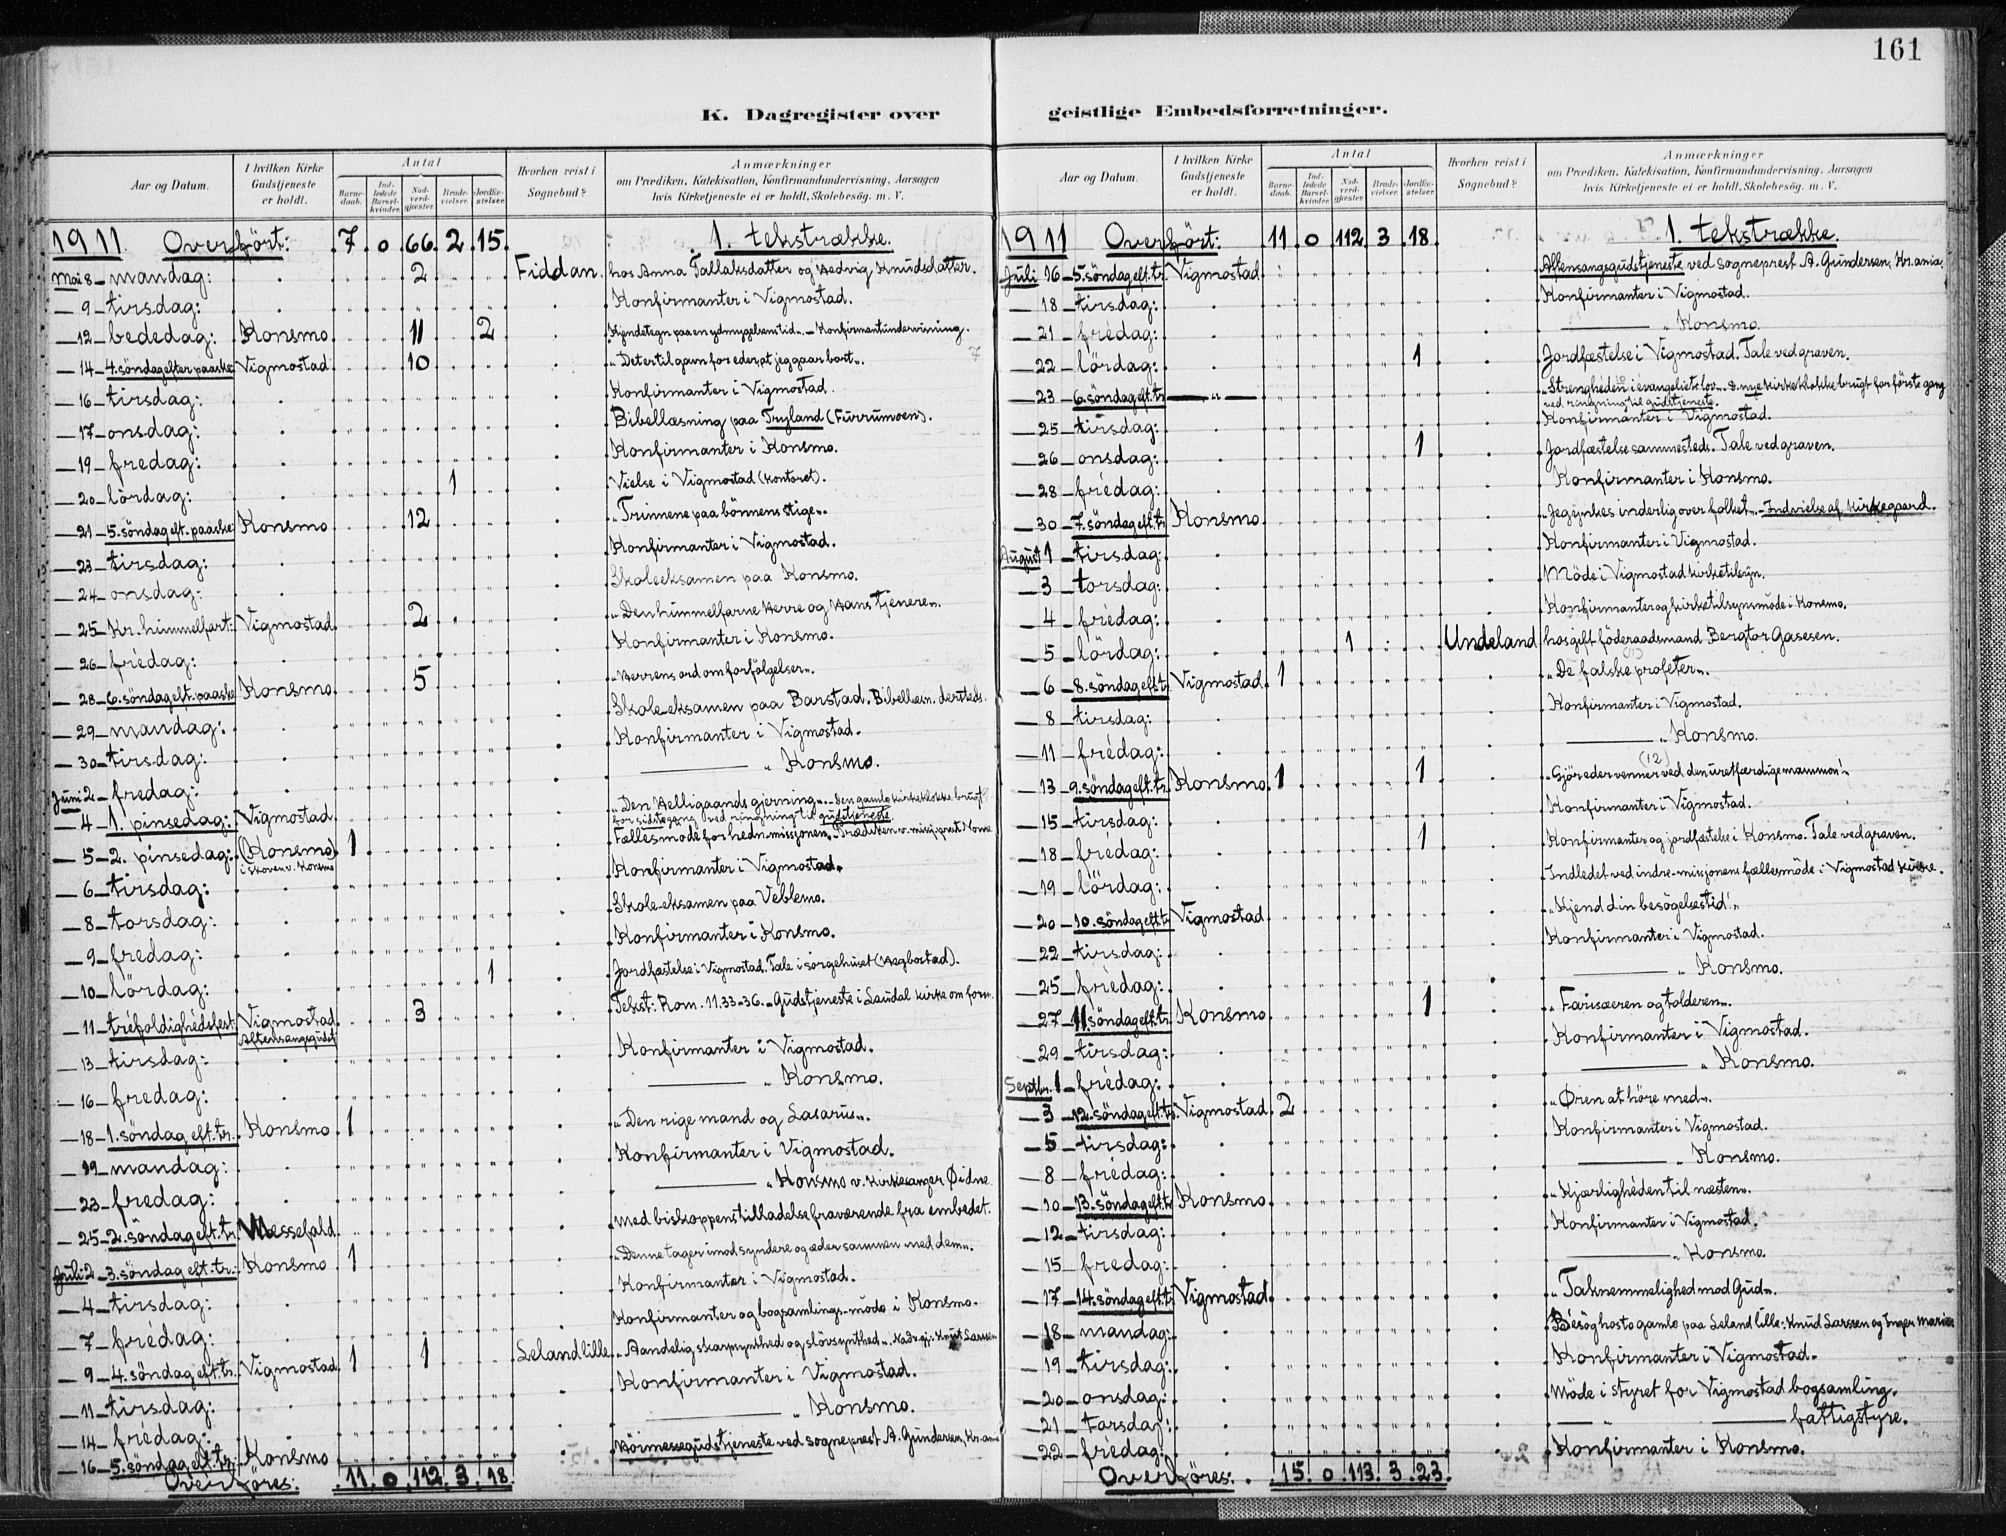 161
K. Dagregister over geistlige Embedsforretninger.
Aar og Datum. I hvilken Kirke Gudstjeneste er holdt. Antal Barne-daab. Ind-ledede Barsel-kvinder. Nad-verd-gjæster. Brude-vielser. Jordfæ-stelser. Hvorhen reist i Sognebud? Anmærkninger om Prædiken, Katekisation, Konfirmandundervisning, Aarsagen hvis Kirketjeneste ei er holdt, Skolebesøg. m. V.
1911. Overført: 7 0 66 2 15. 1. tekstrække.
Mai 8 - mandag: 2 Fiddan. hos Anna Tallaksdatter og Hedvig Knudsdatter.
- 9 - tirsdag: Konfirmanter i Vigmostad.
- 12 - bededag: Konsmo 11 2 Kjendetegn paa en ydmygelsens tid". - Konfirmantundervisning.
- 14 - 4. söndag efter paaske: Vigmostad 10 "Det er til gavn for eder, at jeg gaar bort".
- 16 - tirsdag: Konfirmanter i Vigmostad.
- 17 - onsdag: Bibellæsning paa Tryland (Furrumoen).
- 19 - fredag: Konfirmanter i Konsmo.
- 20 - lördag: 1 Vielse i Vigmostad (kontoret).
- 21 - 5. söndag eft. paaske: Konsmo 12 "Trinnene paa bönnens stige".
- 23 - tirsdag: Konfirmanter i Vigmostad.
- 24 - onsdag: Skoleeksamen paa Konsmo.
- 25 - Kr. himmelfart: Vigmostad 2 "Den himmelfarne Herre og Hans tjenere".
- 26 - fredag: Konfirmanter i Konsmo.
- 28 - 6. söndag eft. paaske Konsmo 5 "Herrens ord om forfölgelser".
- 29 - mandag: Skole-eksamen paa Barstad. Bibellæsn. dersteds.
- 30 - tirsdag: Konfirmanter i Vigmostad.
Juni 2 - fredag: " Konsmo.
- 4 - 1. pinsedag: Vigmostad "Den Helligaands gjerning". - Den gamle kirkeklokke brugt for sidste gang ved ringning til gudstjeneste.
- 5 - 2. pinsedag: (Konsmo) i skoven v. Konsmo 1 Fællesmöde for hedn. missjonen. Prædiken v. missj.prest Nome
- 6 - tirsdag: Konfirmanter i Vigmostad.
- 8 - torsdag: Skole-eksamen paa Veblemo.
- 9 - fredag: Konfirmanter i Konsmo.
- 10 - lördag: 1 Jordfæstelse i Vigmostad. Tale i sörgehuset (Hægbostad).
- 11 - tréfoldighedsfest: Vigmostad Aftensangsgudst 3 Tekst: Rom. 11. 33-36. - Gudstjeneste i Laudal kirke om form.
- 13 - tirsdag: Konfirmanter i Vigmostad.
- 16 - fredag: " Konsmo.
- 18 - 1. söndag eft. tr. Konsmo 1 "Den rige mand og Lasarus".
- 19 - mandag: Konfirmanter i Vigmostad.
- 23 - fredag: " Konsmo v. kirkesanger Øidne.
- 25 - 2. söndag eft. tr. Messefald. Med biskoppens tilladelse fraværende fra embedet.
Juli 2 - 3. söndag eft. tr. Konsmo 1 "Denne tager imod syndere og æder sammen med dem".
- 4 - tirsdag: Konfirmanter i Vigmostad.
- 7 - frédag: Konfirmanter og bogsamlings-möde i Konsmo.
- 9 - 4. söndag eft. tr. Vigmostad 1 1 Leland lille "Aandelig skarpsynthed og slövsynthed". Nadvgj: Knut Larssen
- 11 - tirsdag: Konfirmanter i Vigmostad.
- 14 - frédag: " Konsmo.
- 16 - 5. söndag eft. tr. Konsmo Höimessegudstjeneste ved sogneprest A. Gundersen, Kr.ania
Overføres: 11. 0. 112. 3. 18.
Aar og Datum. I hvilken Kirke Gudstjeneste er holdt. Antal Barne-daab. Ind-ledede Barsel-kvinder. Nad-verd-gjæster. Brude-vielser. Jordfæ-stelser. Hvorhen reist i Sognebud? Anmærkninger om Prædiken, Katekisation, Konfirmandundervisning, Aarsagen hvis Kirketjeneste ei er holdt, Skolebesøg. m. V.
1911 Overført: 11 0 112 3 18 1. tekstrække.
Juli 16 - 5. söndag eft. tr. Vigmostad Aftensangsgudstjeneste ved sogneprest A. Gundersen, Kr.ania.
- 18 - tirsdag: Konfirmanter i Vigmostad.
- 21 - frédag: " Konsmo.
- 22 - lördag: 1 Jordfæstelse i Vigmostad. Tale ved graven.
- 23 - 6. söndag eft. tr. " "Strengheden i evangeliets lov". 8. nye kirkeklokke brugt for förste gang ved ringning til gudstjeneste.
- 25 - tirsdag: Konfirmanter i Vigmostad.
- 26 - onsdag: 1 Jordfæstelse sammesteds. Tale ved graven.
- 28 - frédag: Konfirmanter i Konsmo.
- 30 - 7. söndag eft. tr. Konsmo "Jeg ynkes inderlig over folket". - Indvielse af kirkegaard.
August 1 - tirsdag: Konfirmanter i Vigmostad.
- 3 - torsdag: Möde i Vigmostad kirketilsyn.
- 4 - frédag: Konfirmanter og kirketilsynsmöde i Konsmo.
- 5 - lördag: 1 Undeland hos gift föderaadsmand Bergtor Gasesen.
- 6 - 8. söndag eft. tr. Vigmostad 1 "De falske profeter".
- 8 - tirsdag: Konfirmanter i Vigmostad.
- 11 - frédag: " Konsmo.
- 13 - 9. söndag eft. tr. Konsmo 1 1 "Gjör eder venner ved den uretfærdige mammon!" (12)
- 15 - tirsdag: Konfirmanter i Vigmostad.
- 18 - fredag: 1 Konfirmanter og jordfæstelse i Konsmo. Tale ved graven.
- 19 - lördag: Indledet ved indre-missjonens fællesmöde i Vigmostad kirke.
- 20 - 10. söndag eft. tr Vigmostad "Kjend din besögelsestid!"
- 22 - tirsdag: Konfirmanter i Vigmostad.
- 25 - fredag: " Konsmo.
- 27 - 11. söndag eft. tr. Konsmo 1 "Farisæeren og tolderen".
- 29 - tirsdag: Konfirmanter i Vigmostad.
Septbr. 1 - frédag: " Konsmo.
- 3 - 12. söndag eft. tr. Vigmostad 2 "Øren at höre med".
- 5 - tirsdag: Konfirmanter i Vigmostad.
- 8 - frédag: " Konsmo.
- 10 - 13. söndag eft. tr Konsmo "Kjærligheden til næsten".
- 12 - tirsdag: Konfirmanter i Vigmostad.
- 15 - fredag: " Konsmo.
- 17 - 14. söndag eft. tr. Vigmostad "Taknemmelighed mod Gud".
- 18 - mandag: Besög hos to gamle paa Leland lille: Knud Larssen og Inger Marie
- 19 - tirsdag: Konfirmanter i Vigmostad.
- 20 - onsdag: Möde i styret for Vigmostad bogsamling.
- 21 - Torsdag: " fattigstyre.
- 22 - fredag: Konfirmanter i Konsmo.
Overføres: 15. 0 113. 3 23.